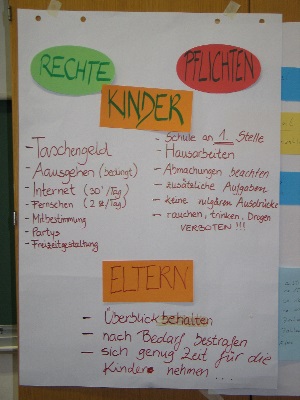 RECHTE
PFLICHTEN
KINDER
- Taschengeld
- Aausgehen (bedingt)
- Internet (30'/Tag)
- Fernsehen (2 St/Tag)
- Mitbestimmung
- Partys
- Freizeitgestaltung
- Schule an 1. Stelle
- Hausarbeiten
- Abmachungen beachten
- zusätzliche Aufgaben
- keine vulgären Ausdrücke
- rauchen, trinken, Drogen
VERBOTEN !!!
ELTERN
- Überblick behalten
- nach Bedarf bestrafen
- sich genug Zeit für die
Kinder nehmen ....